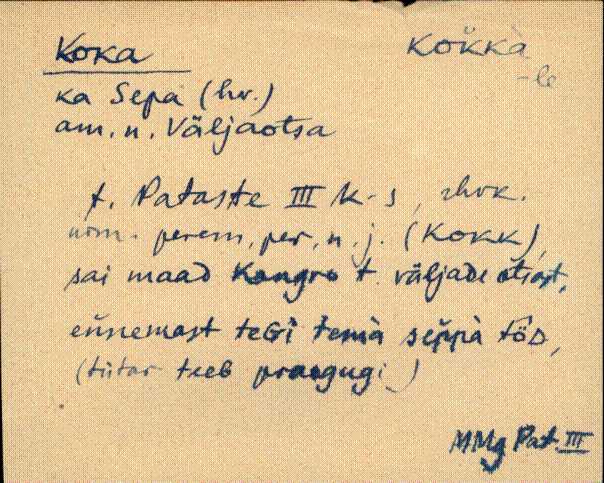 Koka
kök̀kà
-le
ka Sepa (hr.)
am. n. Väljaotsa
t. Pataste III k-s, rhvk.
nim. perem. per. n. j. (Kokk),
sai maad Kangro t. väljade otsast,
ennemast tegi tema seppa töD,
(tütar teeb praegugi)
MMg Pat. III